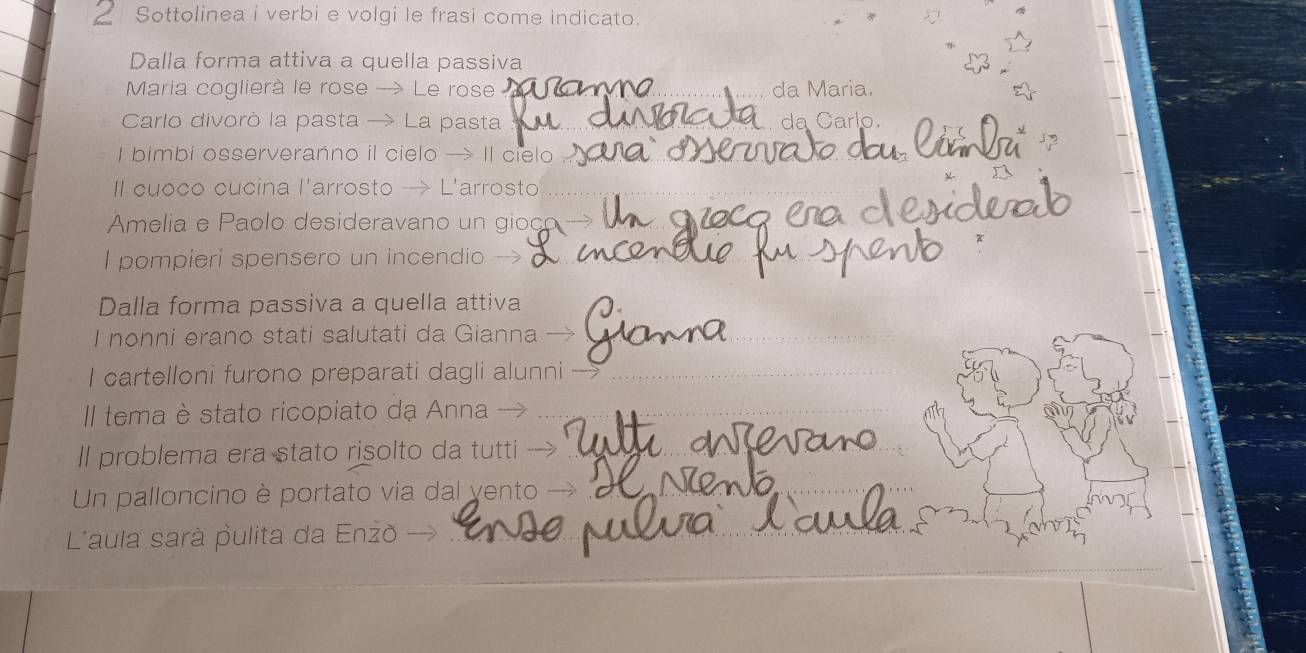 2 Sottolinea i verbi e volgi le frasi come indicato.
Dalla forma attiva a quella passiva
Maria coglierà le rose → Le rose saranno da Maria.
Carlo divorò la pasta → La pasta fu divorata da Carlo.
I bimbi osserveranno il cielo → Il cielo sarà osservato dai bimbi
Il cuoco cucina l'arrosto → L'arrosto
Amelia e Paolo desideravano un gioco → Un gioco era desiderato
I pompieri spensero un incendio → L incendio fu spento
Dalla forma passiva a quella attiva
I nonni erano stati salutati da Gianna → Gianna
I cartelloni furono preparati dagli alunni →
Il tema è stato ricopiato da Anna →
Il problema era stato risolto da tutti → Tutti avevano
Un palloncino è portato via dal vento → Il vento
L'aula sarà pulita da Enzo → Enzo pulirà l'aula